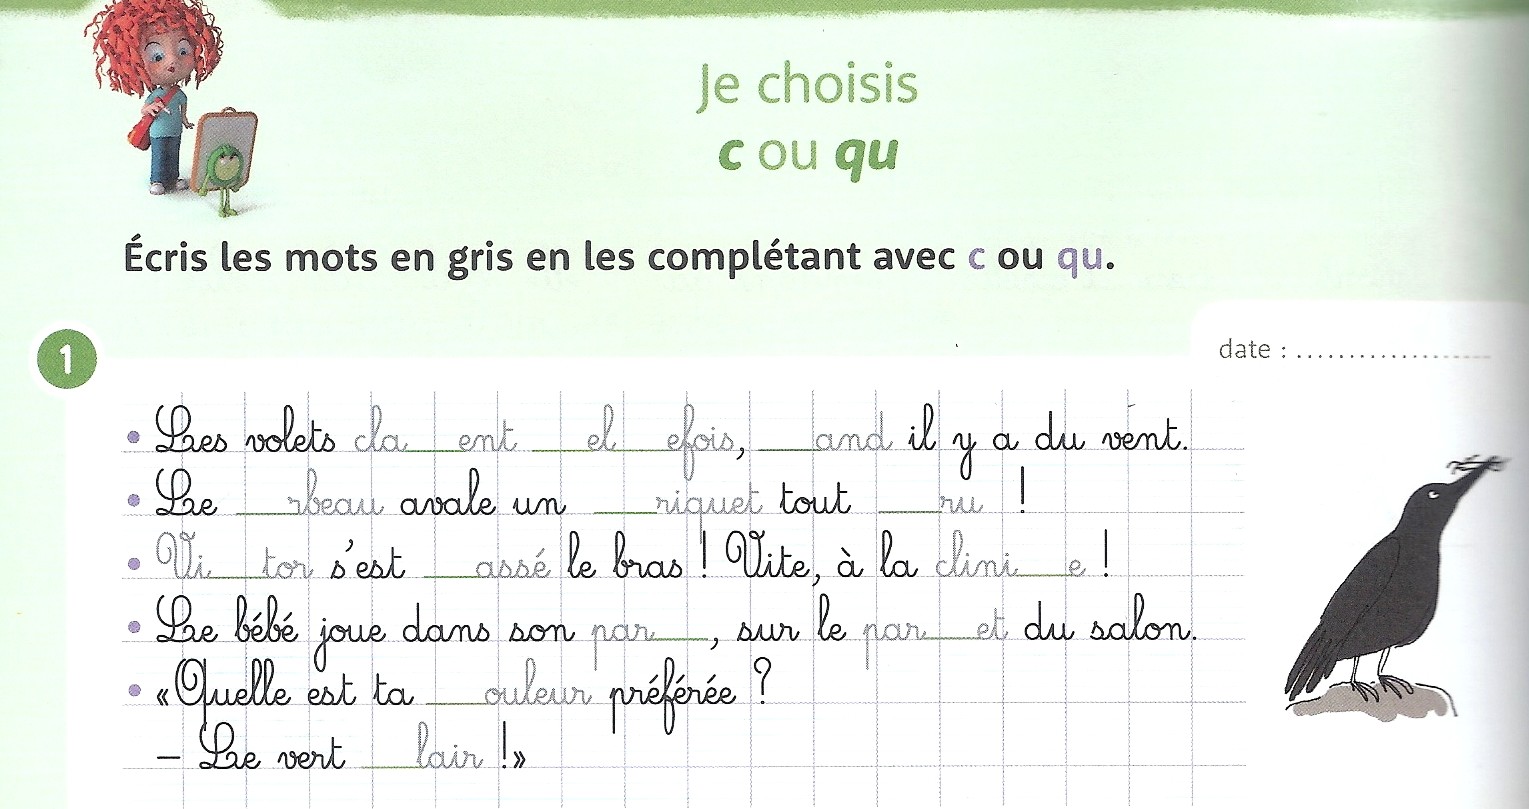 Je choisis
c ou qu
Écris les mots en gris en les complétant avec c ou qu.
1
date : ....................
• Les volets cla___ent ___el___efois, ___and il y a du vent.
• Le ___rbeau avale un ___riquet tout ___ru !
• Vi___tor s'est ___assé le bras ! Vite, à la clini___e !
• Le bébé joue dans son par___, sur le par___et du salon.
• «Quelle est ta ___ouleur préférée ?
– Le vert ___lair !»